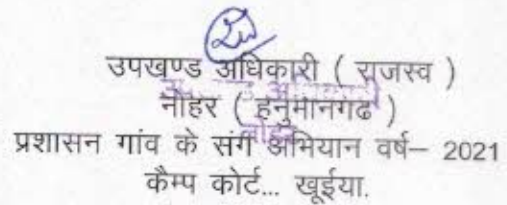 उपखण्ड अधिकारी ( राजस्व )
नोहर ( हनुमानगढ )
प्रशासन गांव के संग अभियान वर्ष– 2021
कैम्प कोर्ट... खूईया.